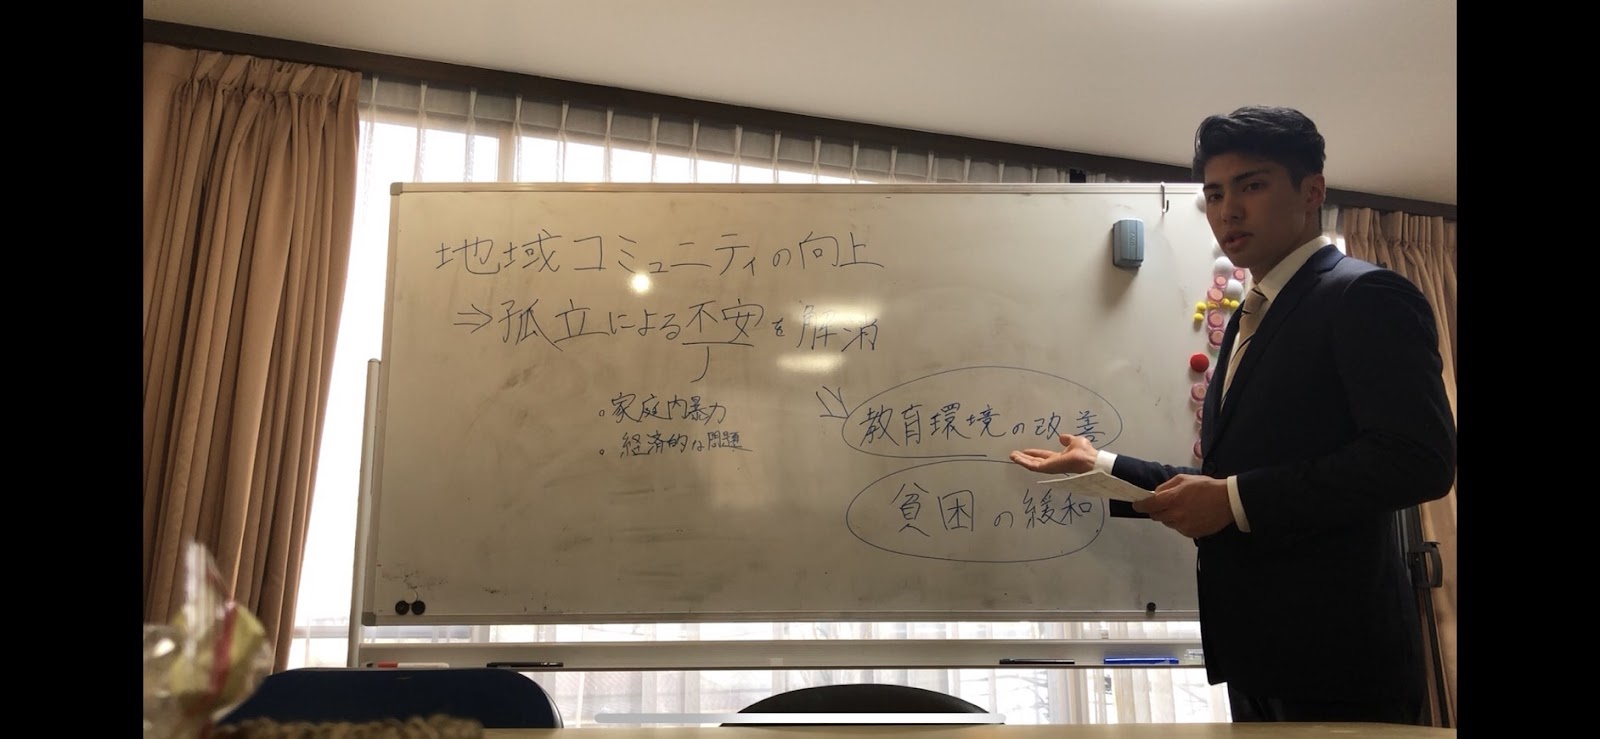 地域コミュニティの向上
⇒孤立による不安を解消
。家庭内暴力
。経済的な問題
教育環境の改善
貧困の緩和